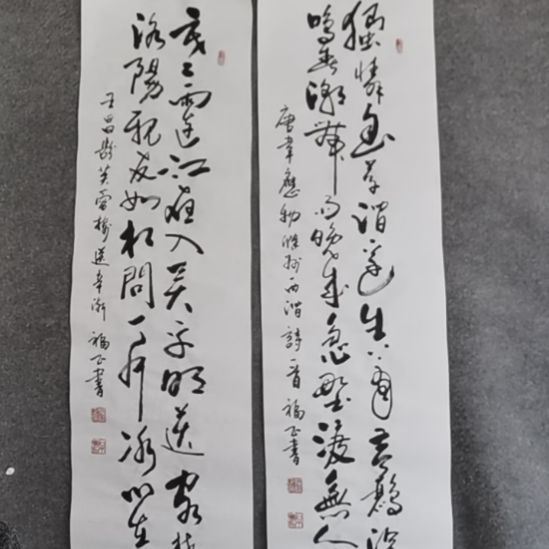 獨憐幽草澗邊生上有黃鸝深
鳴春潮帶雨晚來急野渡無人
唐韋應物滁州西澗詩一首 福正書
寒雨連江夜入吳平明送客楚
洛陽親友如相問一片冰心在
王昌齡芙蓉樓送辛漸 福正書